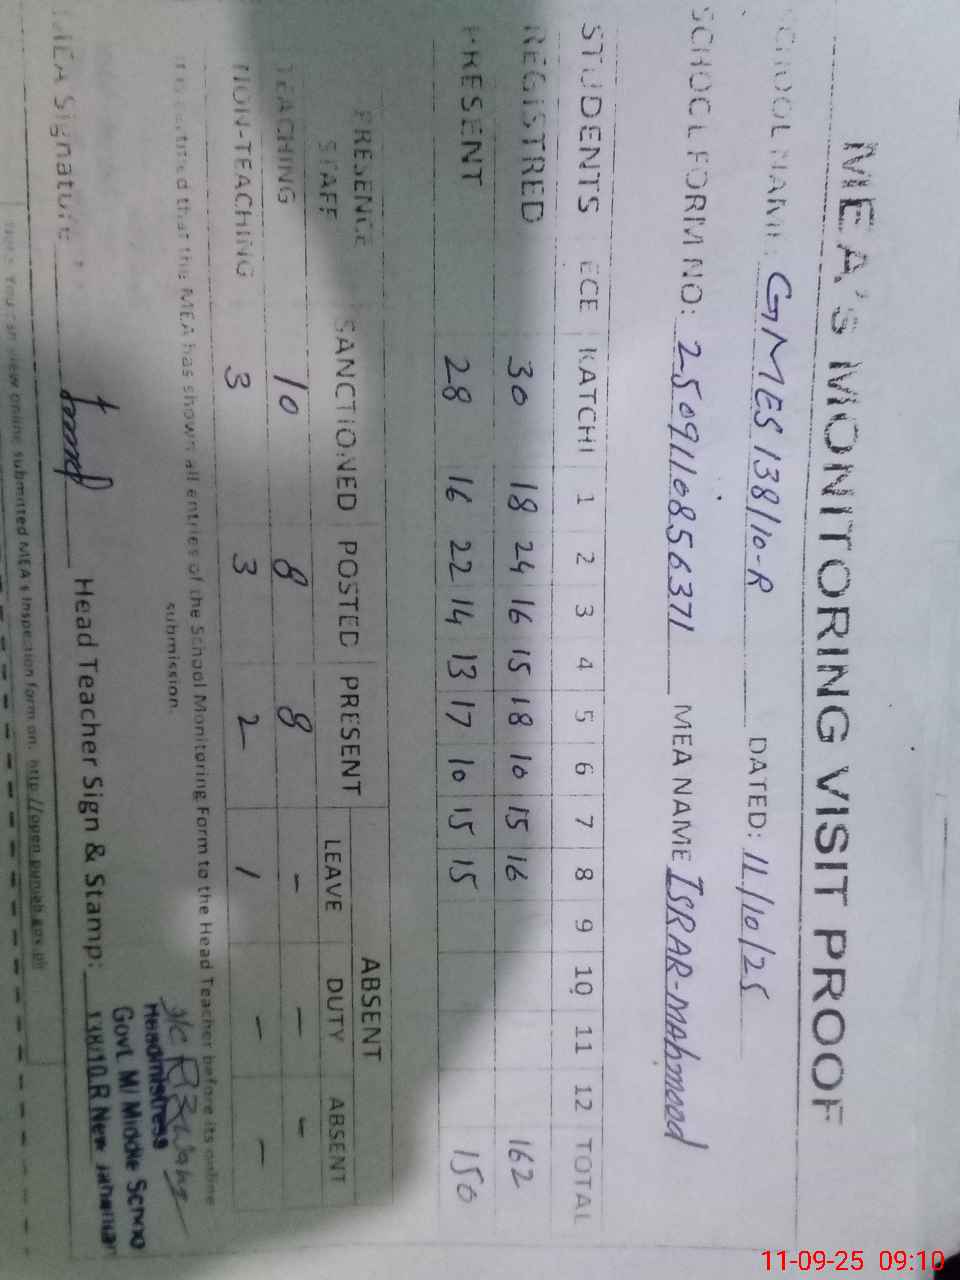 MEA'S MONITORING VISIT PROOF
SCHOOL NAME: GMES 138/10-R DATED: 11/10/25
SCHOOL FORM NO: 2509110856371 MEA NAME ISRAR-MAHMOOD
STUDENTS ECE KATCHI 1 2 3 4 5 6 7 8 9 10 11 12 TOTAL
REGISTRED 30 18 24 16 15 18 10 15 16 162
PRESENT 28 16 22 14 13 17 10 15 15 150
PRESENCE STAFF SANCTIONED POSTED PRESENT ABSENT
LEAVE DUTY ABSENT
TEACHING 10 8 8 - - -
NON-TEACHING 3 3 2 1 - -
It is certified that the MEA has shown all entries of the School Monitoring Form to the Head Teacher before its online
submission.
MEA Signature Head Teacher Sign & Stamp:
Headmistress
Govt. M/ Middle
138/10.R New
You can view online submitted MEA's Inspection form on: http://open.punjab.gov.pk
11-09-25 09:10